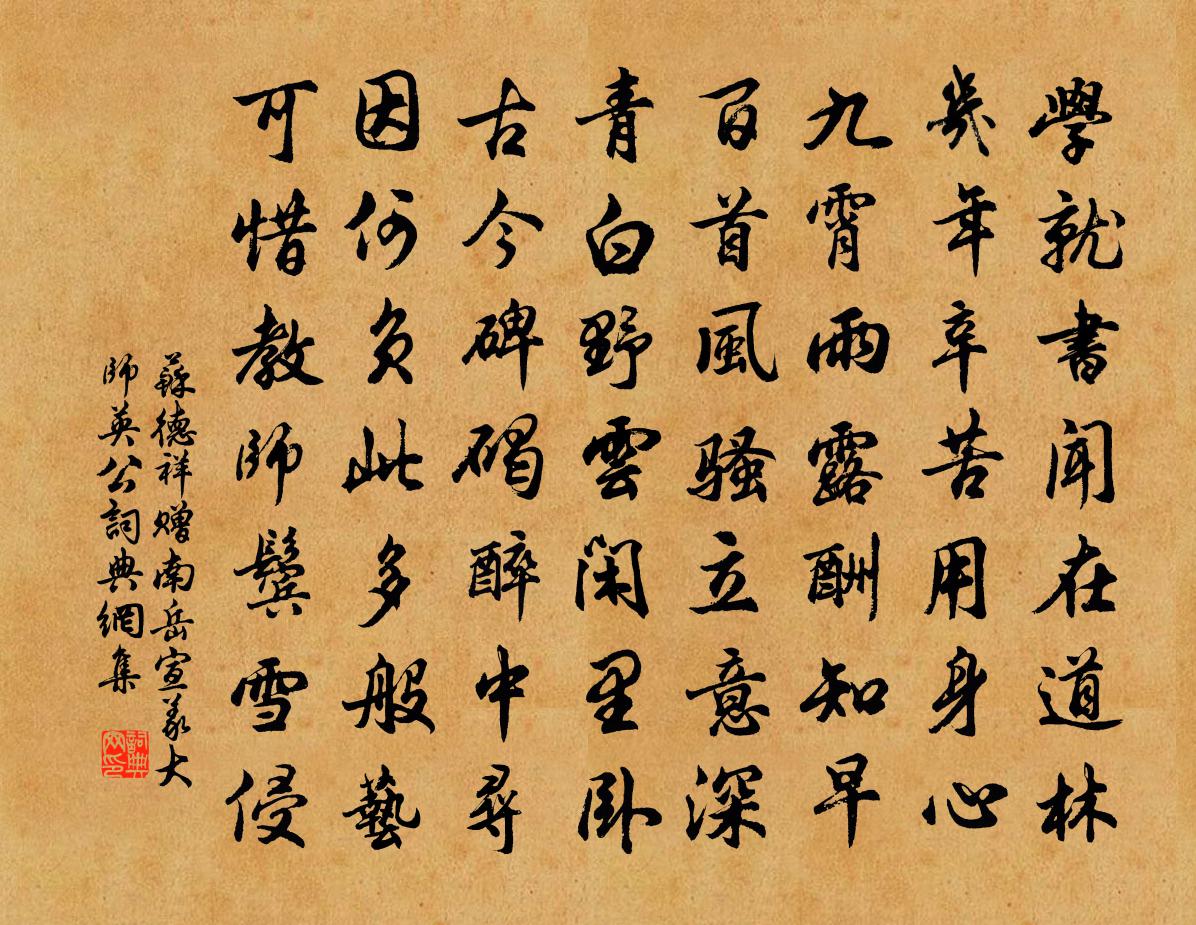 學就書聞在道林
幾年辛苦用身心
九霄雨露酬知早
百首風騷立意深
青白野雲閑里卧
古今碑碣醉中尋
因何負此多般藝
可惜教師鬢雪侵
蘇德祥贈南岳宣義大
師英公詞典網集
詞典网印